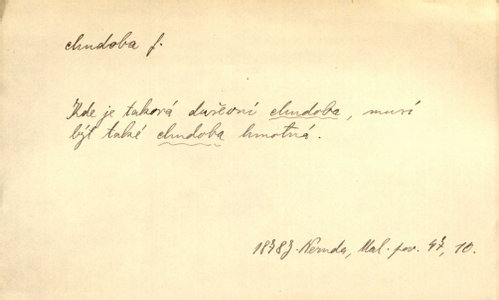 chudoba f.
Kde je taková duševní chudoba, musí
být také chudoba hmotná.
1878 J. Neruda, Mal. pov. 47, 10.